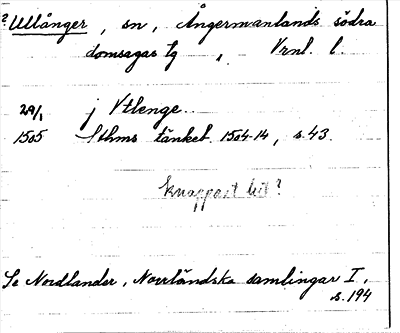 ? Ullånger, sn, Ångermanlands södra
domsagas tg, Vrnl. l.
29/1 j Vtlenge.
1505 Sthms tänkeb. 1504-14, s. 43.
knappast hit?
Se Nordlander, Norrländska samlingar I,
s. 194